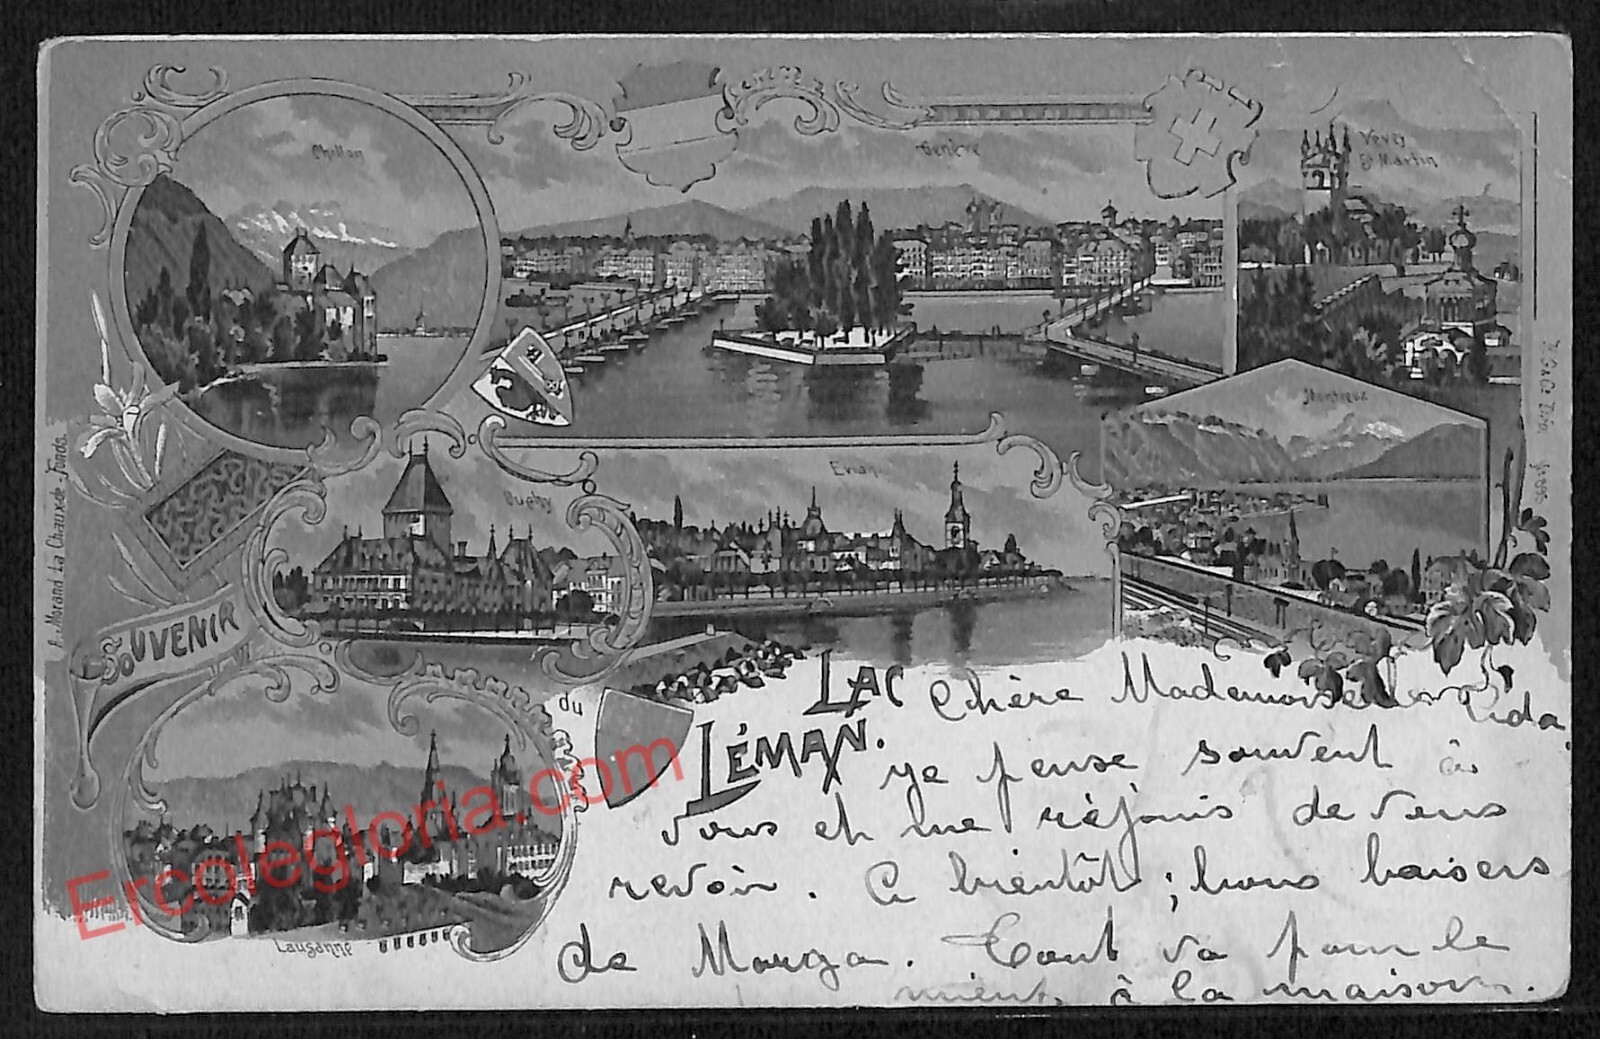 Chillon
Genève
Vevey
St Martin
Montreux
Ouchy
Evian
SOUVENIR
du
LAC
LÉMAN.
Lausanne
A. Morand La Chaux de-Fonds.
Chère Mademoiselle Lida,
je pense souvent à
vous et me réjouis de vous
revoir. A bientôt; bons baisers
de Morga. Tout va pour le
mieux, à la maison.
Ercolegloria.com